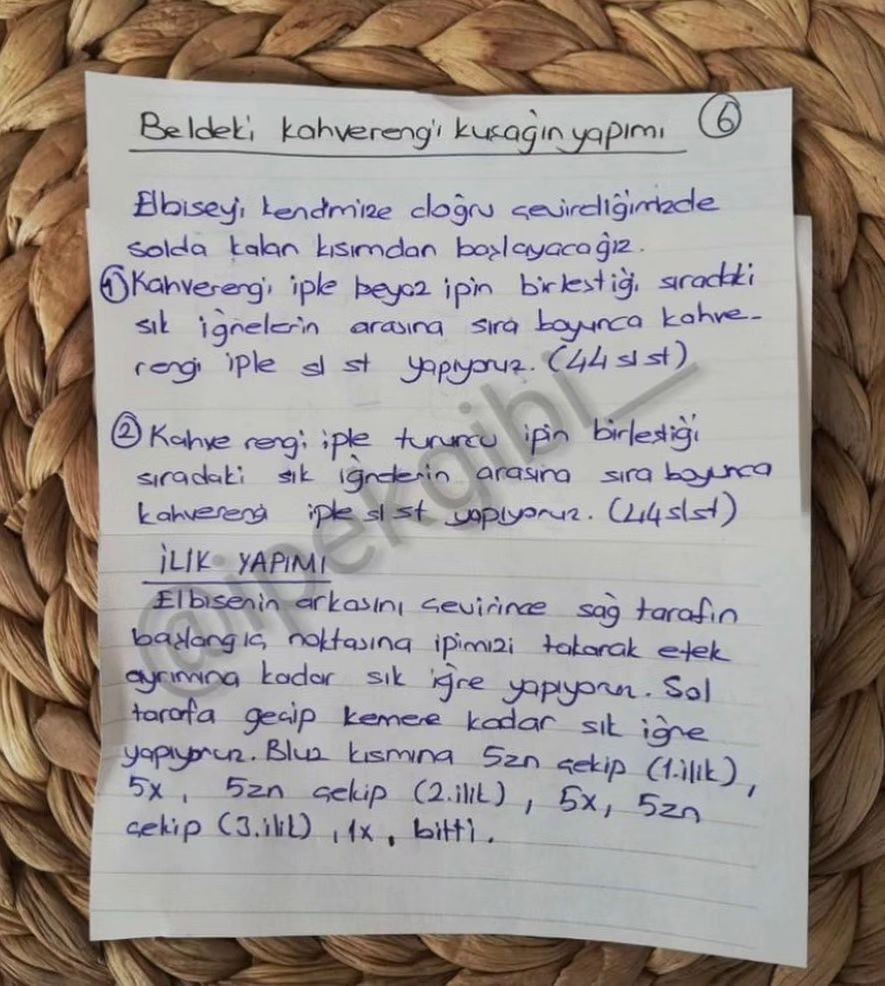 Beldeki kahverengi kuşağın yapımı 6
Elbiseyi kendmize doğru çevirdiğimizde
solda kalan kısımdan başlayacağız.
1 Kahverengi iple beyaz ipin birleştiği sıradaki
sık iğnelerin arasına sıra boyunca kahve-
rengi iple sl st yapıyoruz. (44 sl st)
2 Kahve rengi iple turuncu ipin birleştiği
sıradaki sık iğnelerin arasına sıra boyunca
kahverengi iple sl st yapıyoruz. (44 sl st)
İLİK YAPIMI
Elbisenin arkasını çevirince sağ tarafın
başlangıç noktasına ipimizi takarak etek
ayrımına kadar sık iğne yapıyoruz. Sol
tarafa geçip kemere kadar sık iğne
yapıyoruz. Bluz kısmına 5zn çekip (1.ilik),
5x, 5zn çekip (2.ilik), 5x, 5zn
çekip (3.ilik), 1x, bitti.
@ipekgibi__